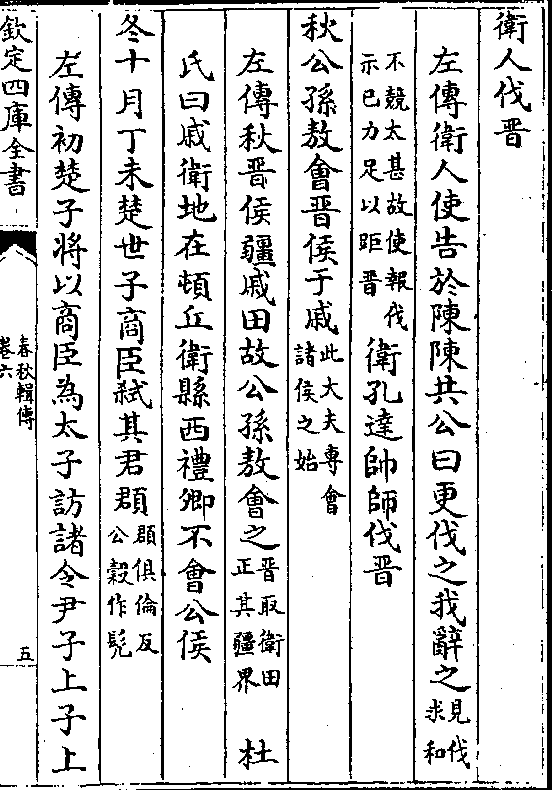 衛人伐晋
左傳衛人使告於陳陳共公曰更伐之我辭之見伐求和
不競太甚故使報伐示已力足以距晋衛孔達帥師伐晋
秋公孫敖會晋侯于戚此大夫專會諸侯之始
左傳秋晋侯疆戚田故公孫敖會之晋取衛田正其疆界杜
氏曰戚衛地在頓丘衛縣西禮卿不會公侯
冬十月丁未楚世子商臣弑其君頵頵俱倫反公穀作髠
左傳初楚子將以商臣為太子訪諸令尹子上子上
欽定四庫全書
春秋輯傳
卷六
五